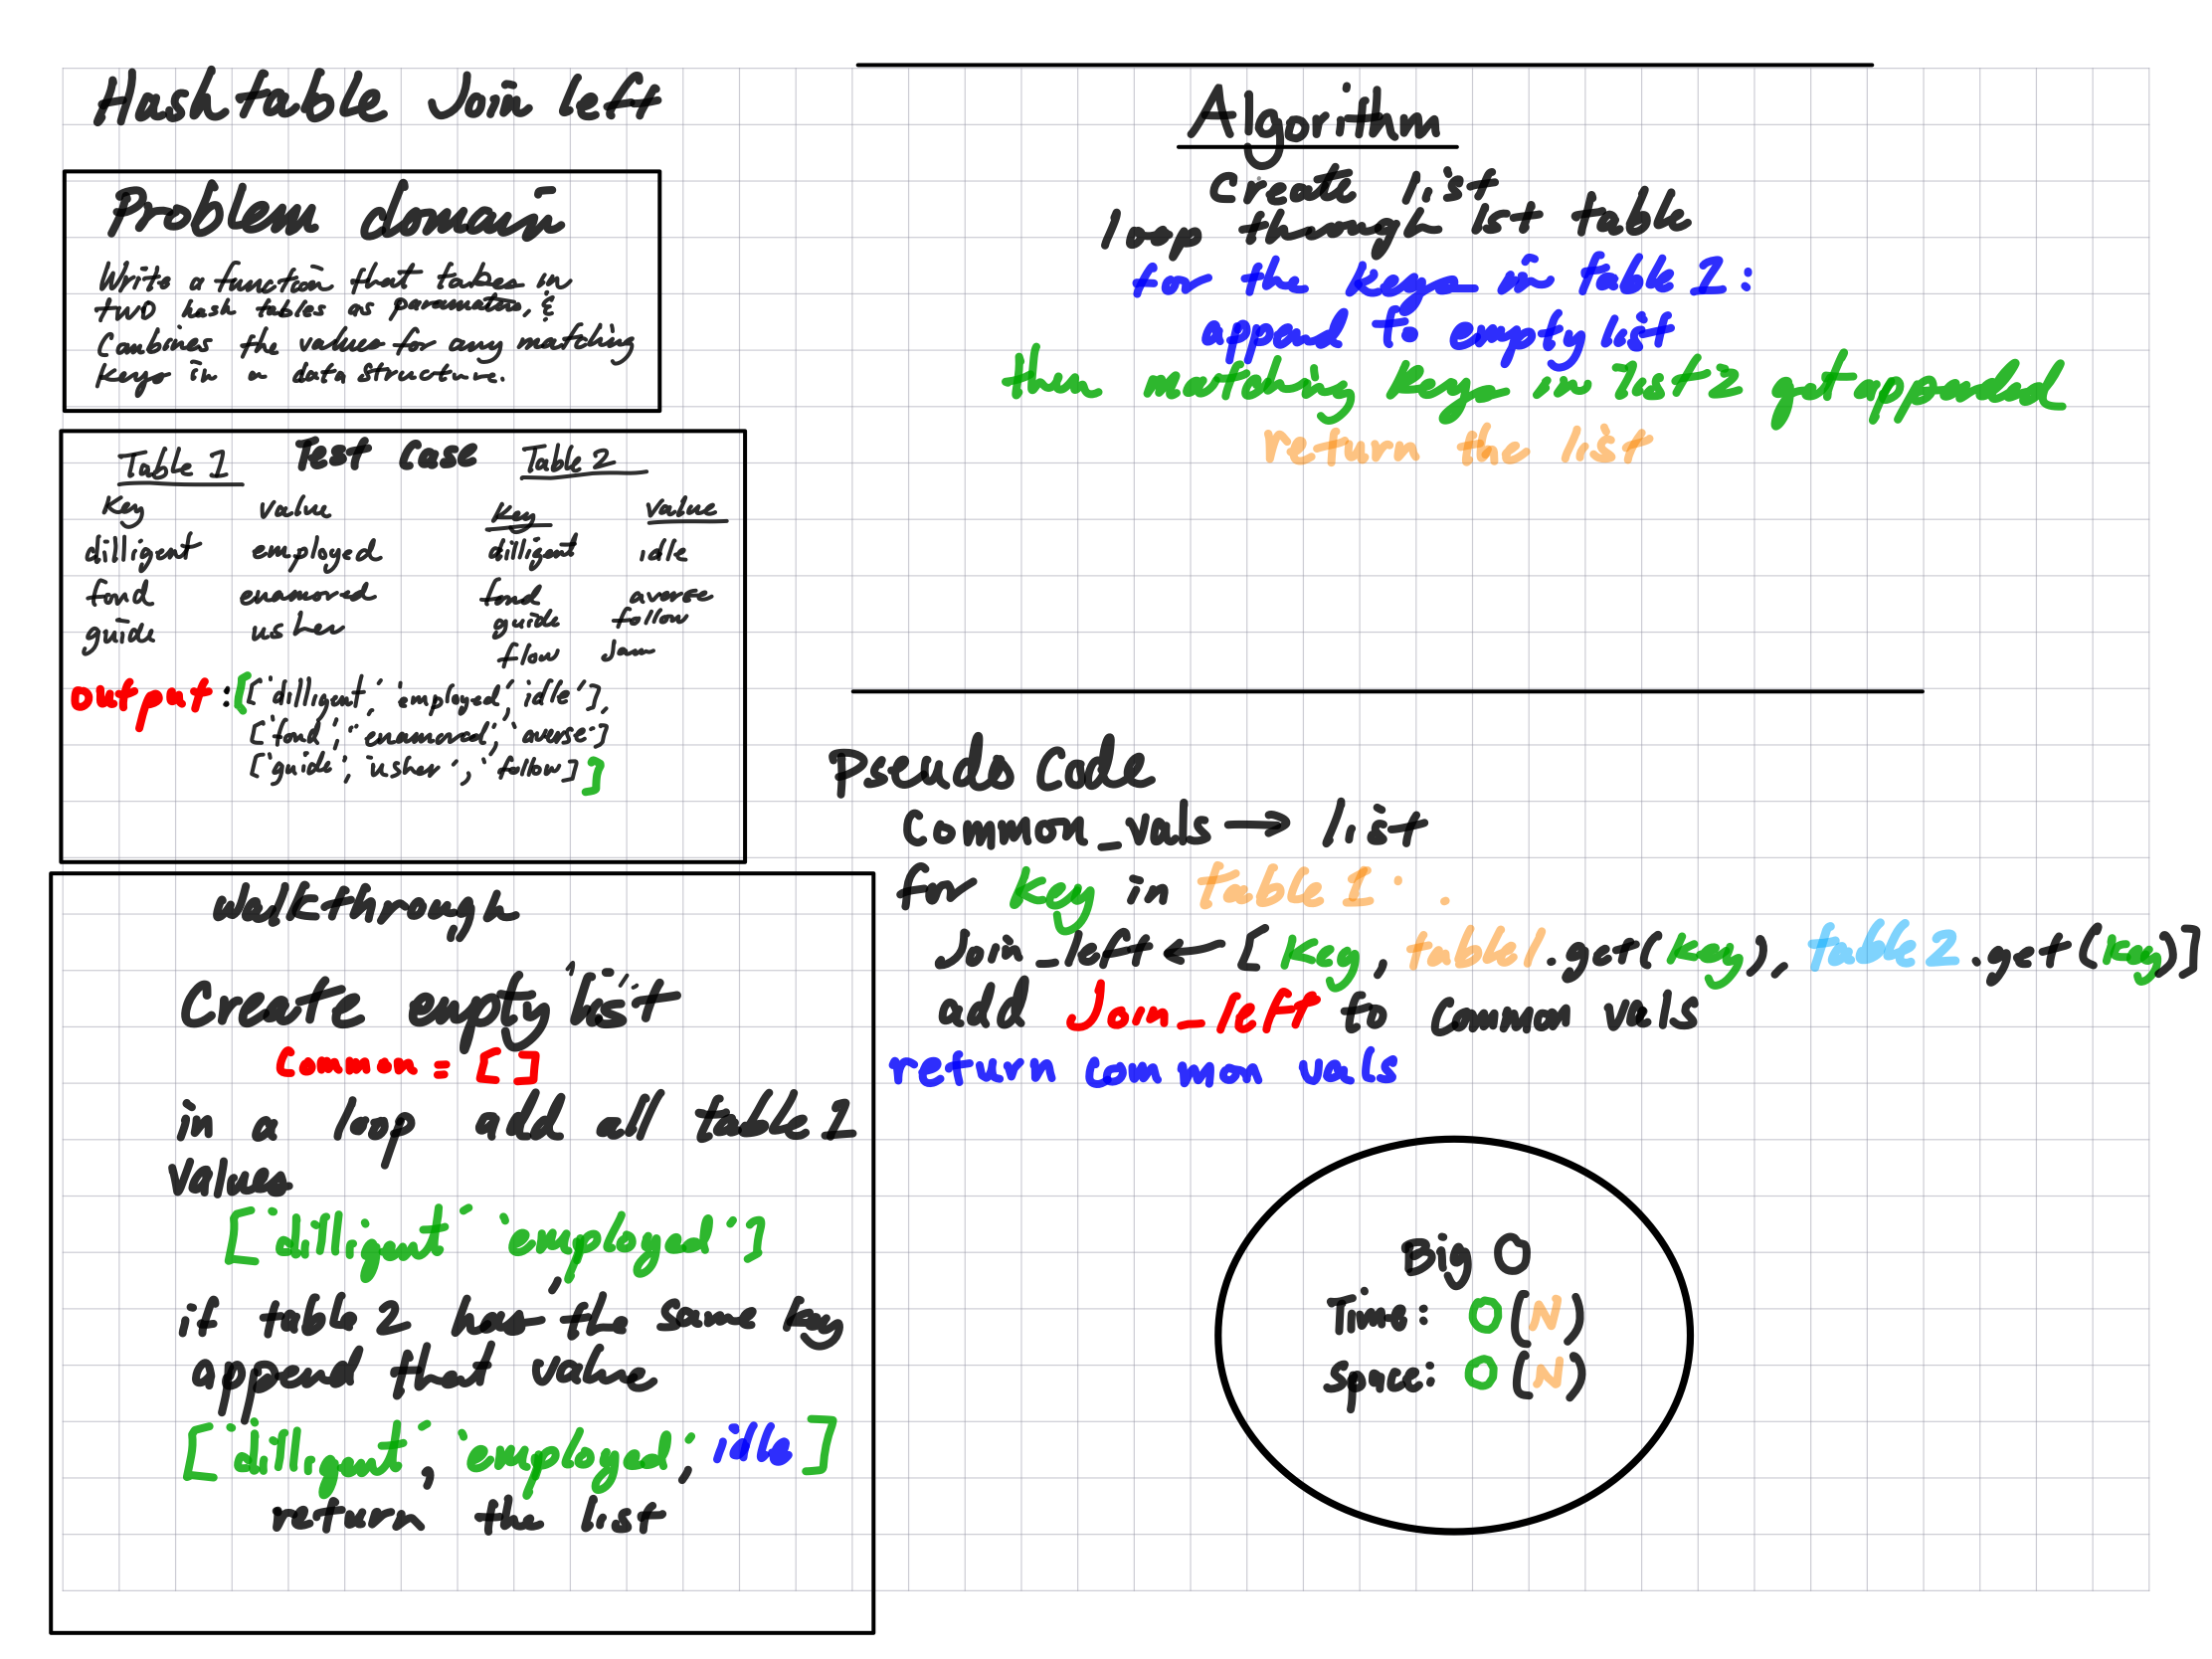 Hash table Join left
Problem domain
Write a function that takes in
two hash tables as parameters, &
Combines the values for any matching
keys in a data structure.
Test Case
Table 1
Table 2
Key value Key value
dilligent employed dilligent idle
fond enamored fond averse
guide usher guide follow
flow Jam
output : [['dilligent', 'employed', idle'],
['fond', 'enamored', 'averse']
['guide', 'usher', 'follow]]
Walkthrough
Create empty list
Common = []
in a loop add all table 1
values
['dilligent', 'employed']
if table 2 has the same key
append that value
['dilligent', 'employed', idle]
return the list
Algorithm
Create list
loop through 1st table
for the keys in table 2:
append to empty list
then matching keys in list 2 get appended
return the list
Pseudo Code
Common_vals → list
for key in table 1 :
Join_left ← [key, table1.get(key), table2.get(key)]
add Join_left to Common vals
return common vals
Big O
Time: O(N)
space: O(N)